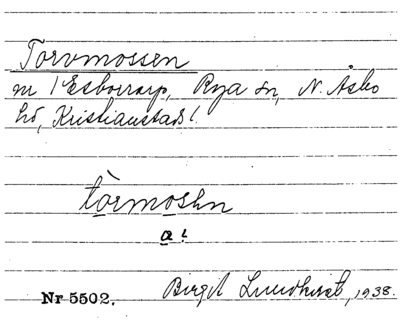 Torvmossen
m 1 Esborrarp, Rya sn, N. Åsbo
hd, Kristianstads l.
tọrmosɦn
a !
Nr 5502. Birgit Lundkvist, 1938.